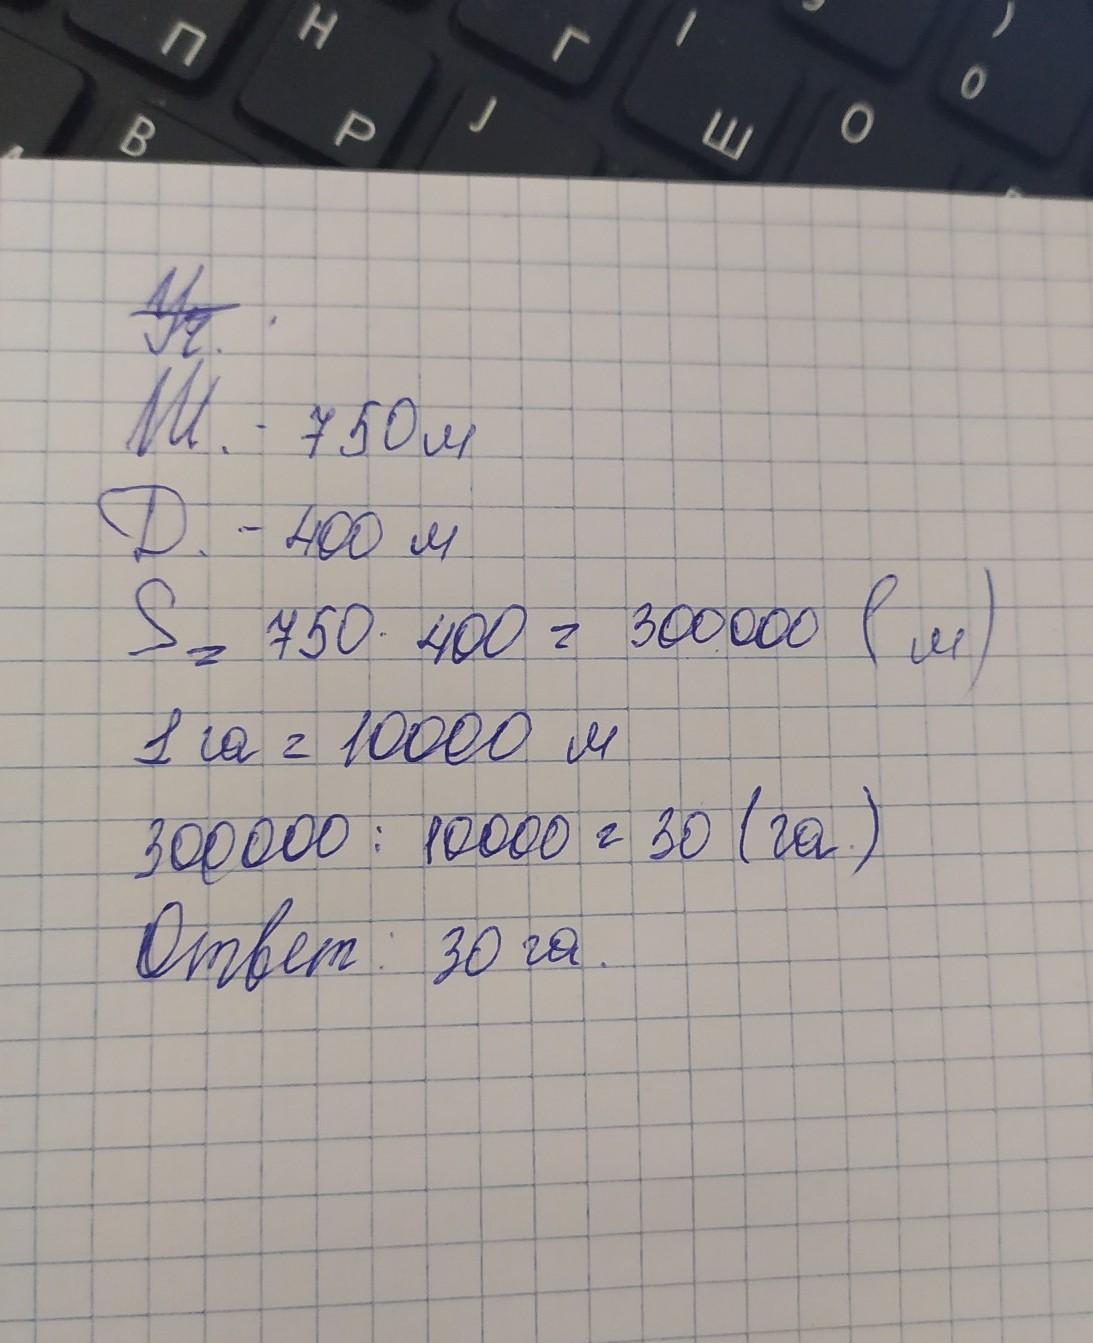 П Н Г І Ш О ) 0
В Р J
Уч.
Ш. - 750 м
D. - 400 м
S = 750 · 400 = 300000 (м)
1 га = 10000 м
300000 : 10000 = 30 (га.)
Ответ: 30 га.